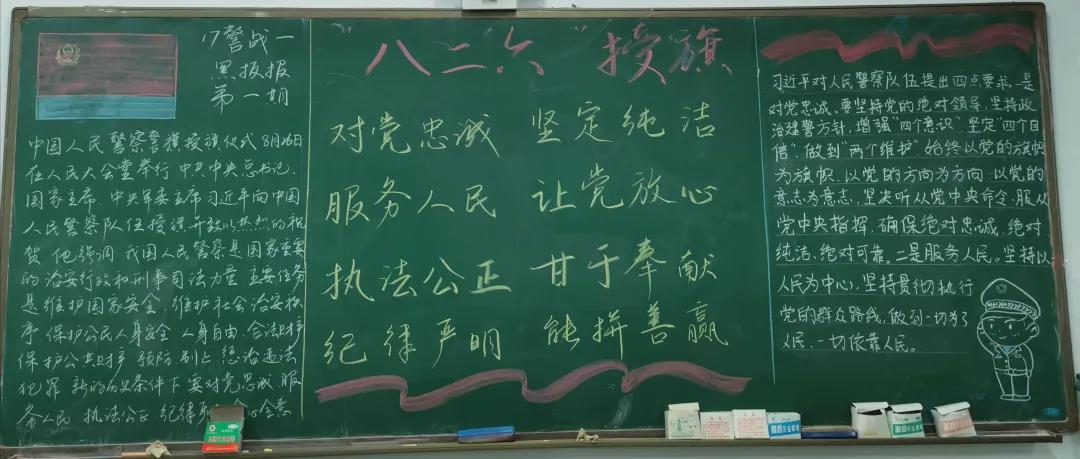 17警战一
黑板报
第一期
中国人民警察警旗授旗仪式8月26日
在人民大会堂举行 中共中央总书记、
国家主席、中央军委主席习近平向中国
人民警察队伍授旗并致以热烈的祝
贺 他强调 我国人民警察是国家重要
的治安行政和刑事司法力量 主要任务
是维护国家安全、维护社会治安秩
序、保护公民人身安全、人身自由、合法财产
保护公共财产 预防 制止 惩治违法
犯罪 新的历史条件下 要对党忠诚 服
务人民 执法公正 纪律
"八二六"授旗
对党忠诚 坚定纯洁
服务人民 让党放心
执法公正 甘于奉献
纪律严明 能拼善赢
习近平对人民警察队伍提出四点要求,一是
对党忠诚。要坚持党的绝对领导、坚持政
治建警方针,增强"四个意识"、坚定"四个自
信"、做到"两个维护"始终以党的旗帜
为旗帜、以党的方向为方向、以党的
意志为意志,坚决听从党中央命令、服从
党中央指挥,确保绝对忠诚、绝对
纯洁、绝对可靠。二是服务人民。坚持以
人民为中心,坚持贯彻执行
党的群众路线,做到一切为了
人民、一切依靠人民。